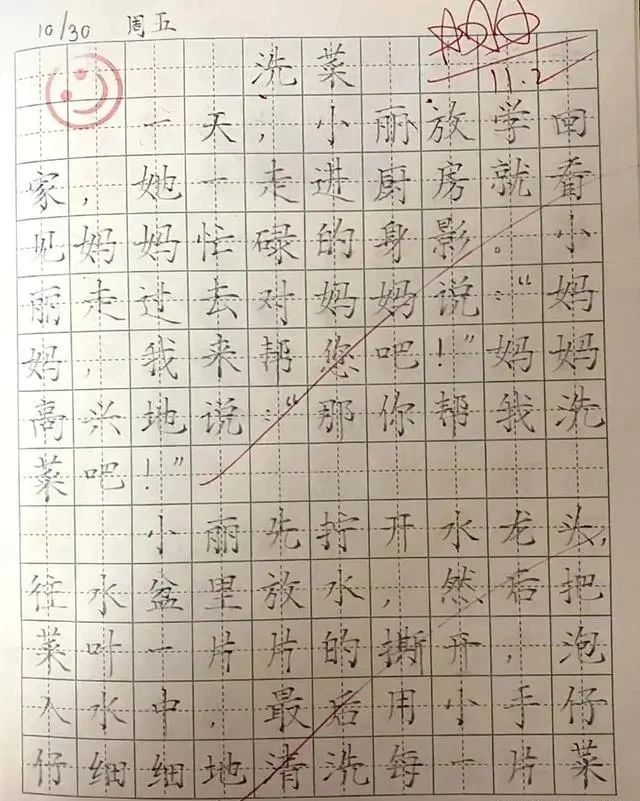 10/30 周五
11.2
洗菜
一天，小丽放学回
家，她一走进厨房就看
见妈妈忙碌的身影。小
丽走过去对妈妈说：“妈
妈，我来帮您吧！”妈妈
高兴地说：“那你帮我洗
菜吧！”
小丽先拧开水龙头，
往水盆里放水，然后把
菜叶一片片的撕开，泡
入水中，最后用小手仔
仔细细地清洗每一片菜